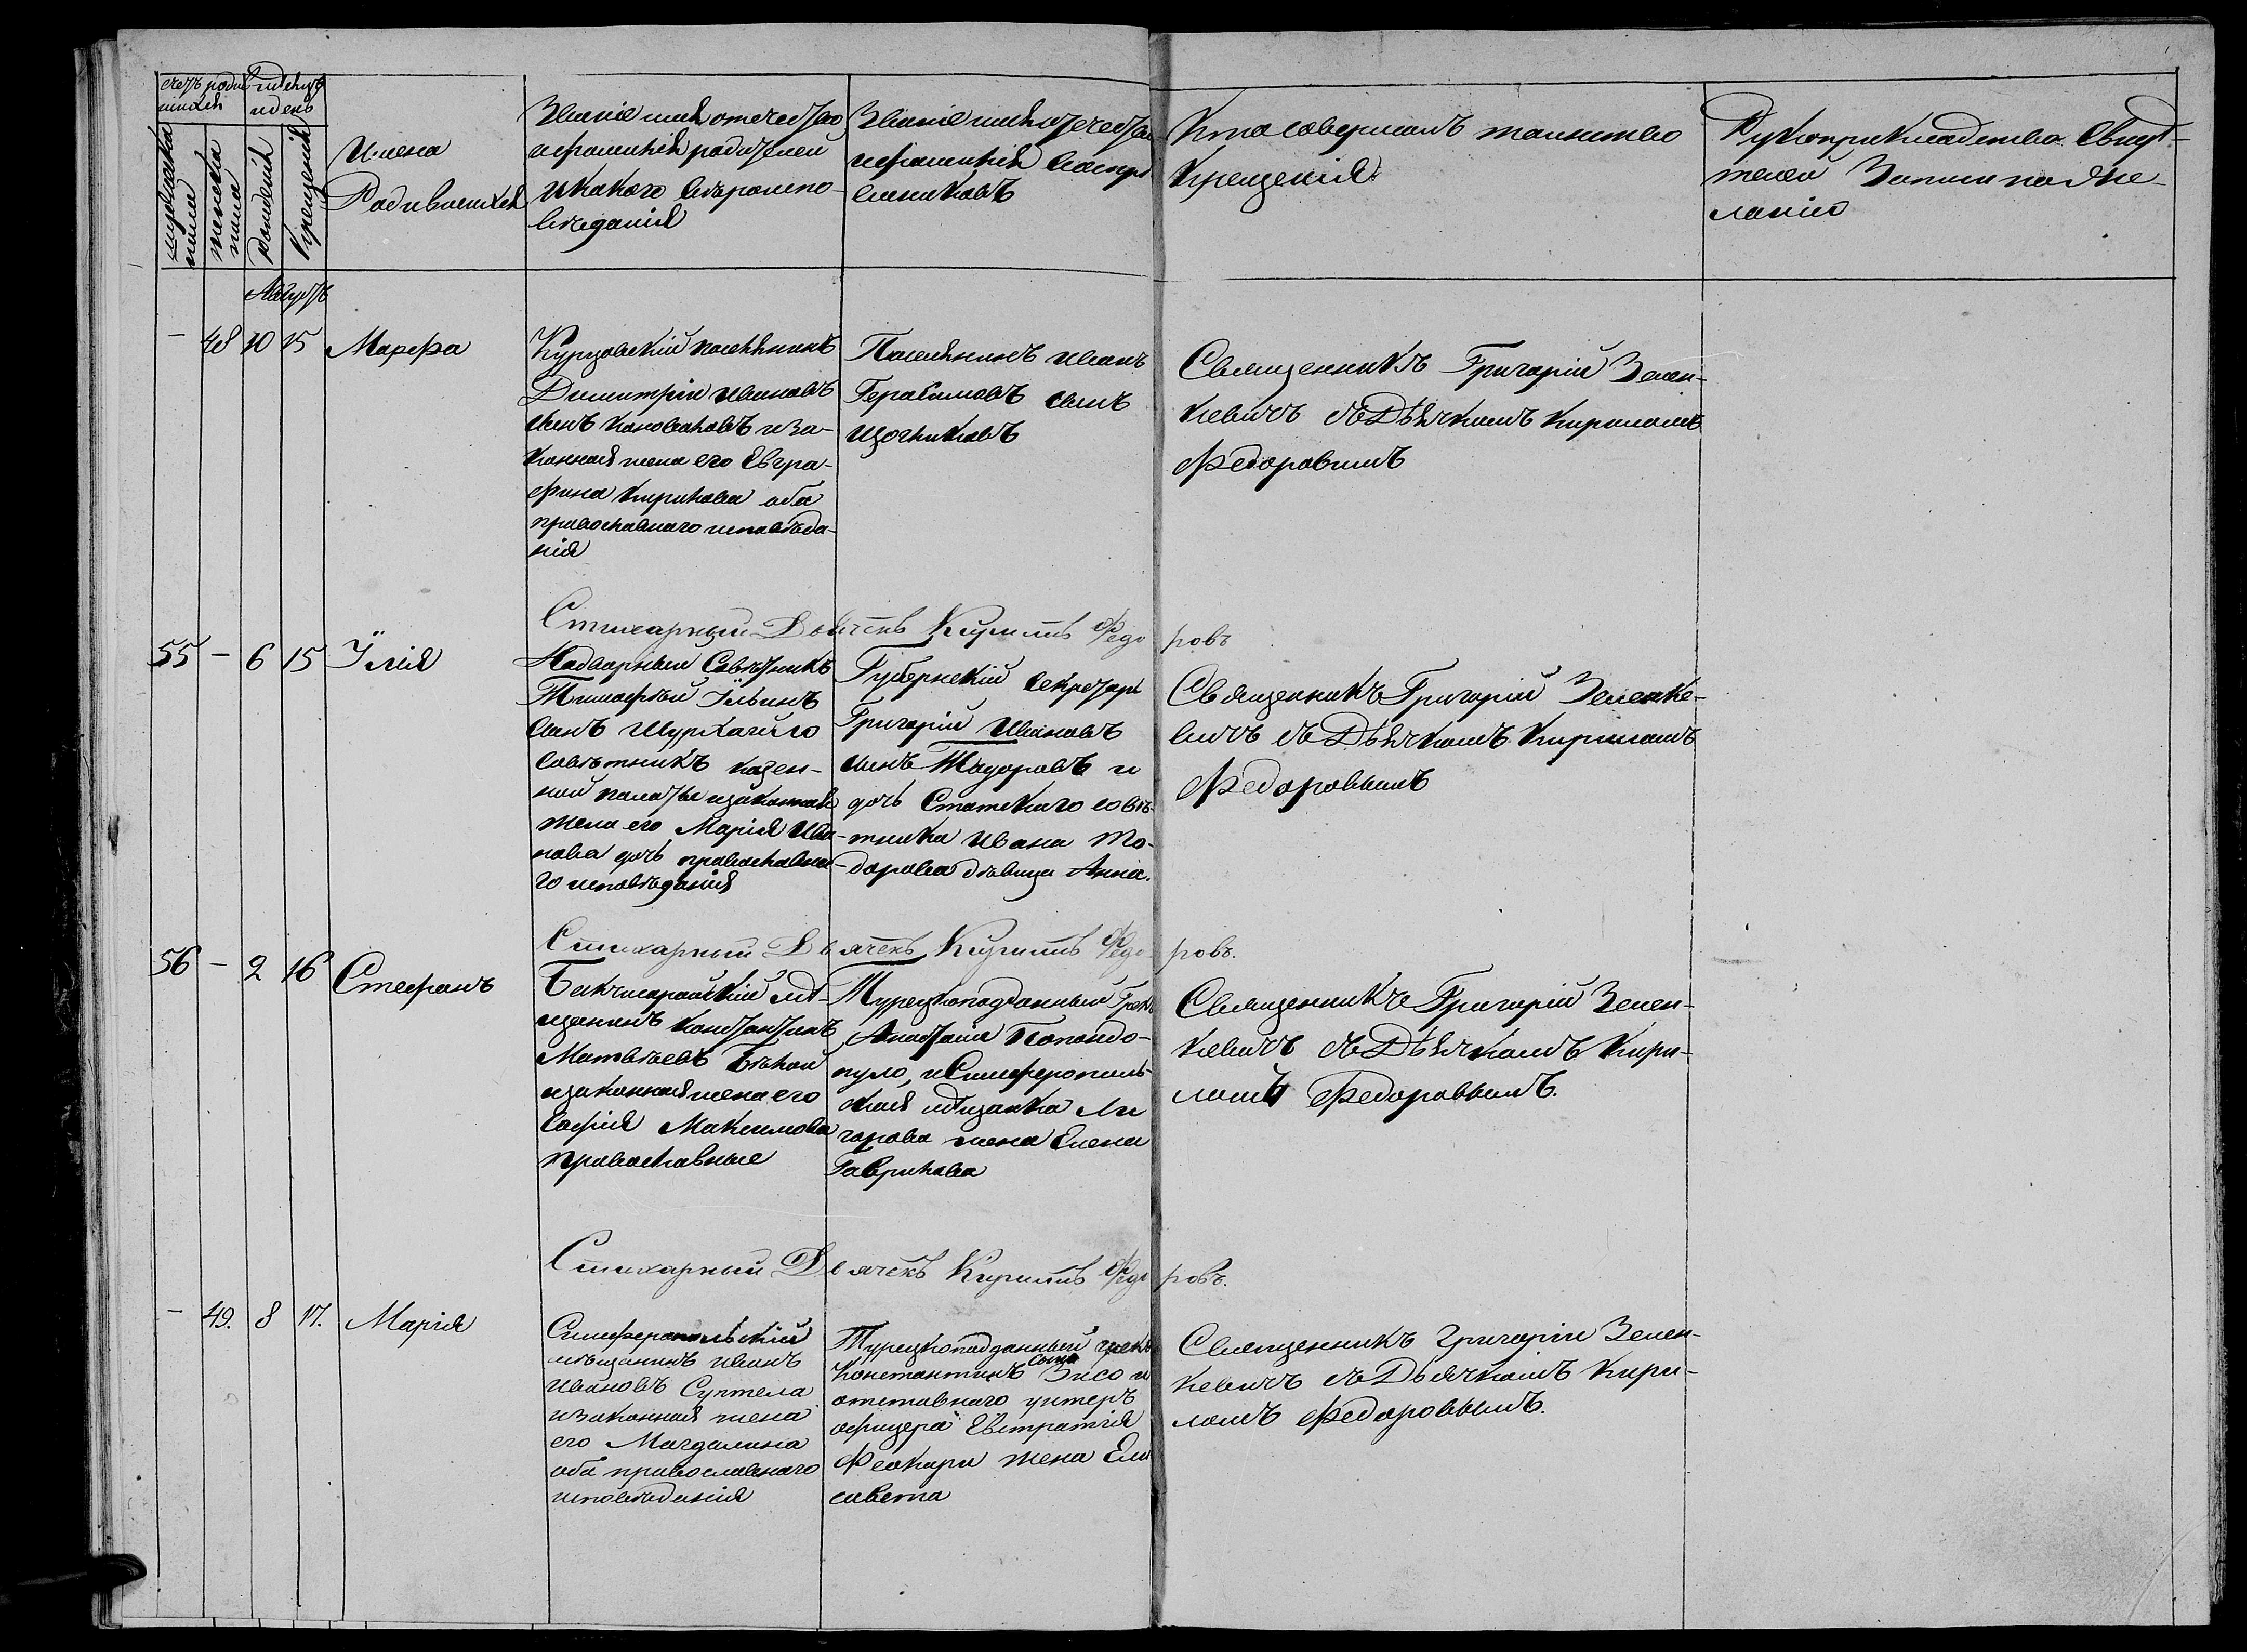 счетъ родив-
шихся
мужеска
пола
женска
пола
Мѣсяцъ
и день
рожденія
Крещенія
Имена
Родившихся
Званіе имя отчество
и фамилія родителей
и какого вѣроиспо-
вѣданія
Званіе имя отечество
и фамилія воспрі
емниковъ
Кто совершалъ таинство
Крещенія
Рукоприкладство свидѣ-
телей записи по же-
ланію
Августъ
— 48 10 15 Марфа
поселянинъ
Димитрій Ивановъ
сынъ Коноваловъ и за-
конная жена его Евгра-
фина Кирилова оба
православнаго исповѣда-
нія
Поселянинъ Иванъ
Герасимовъ сынъ
Священникъ Григорій Зелен-
кевичъ съ Дьячкомъ Кириломъ
Федоровымъ
Стихарный Дьячекъ Кириллъ Федоровъ
55 — 6 15 Илія
Надворный Совѣтникъ
Тимофѣй Ильинъ
сынъ
совѣтникъ казен-
ной палаты и законная
жена его Марія Ива-
нова дочь православна-
го исповѣданія
Губернскій секретарь
Григорій Ивановъ
сынъ Тодоровъ и
дочь Статскаго совѣ-
тника Ивана То-
дорова дѣвица Анна.
Священникъ Григорій Зеленке-
вичъ съ Дьячкомъ Кириломъ
Федоровымъ
Стихарный Дьячекъ Кириллъ Федоровъ.
56 — 2 16 Стефанъ
Бакчисарайскій мѣ-
щанинъ Константинъ
Матвѣевъ
и законная жена его
Софія Максимова
православные
Турецкоподданный Грекъ
Анастасій Попандо-
пуло, и Симферополь-
ская мѣщанка Ли
горова жена Елена
Гаврилова
Священникъ Григорій Зелен-
кевичъ съ Дьячкомъ Кири-
ломъ Федоровымъ.
Стихарный Дьячекъ Кириллъ Федоровъ.
— 49. 8 17. Марія
Симферопольскій
мѣщанинъ Иванъ
Ивановъ Суптела
и законная жена
его Магдалина
оба православнаго
исповѣданія
Турецкоподданный грекъ
Константинъ Зисо и
отставнаго унтеръ
офицера Евстратія
Феокари жена Ели
савета
Священникъ Григорій Зелен-
кевичъ съ Дьячкомъ Кири-
ломъ Федоровымъ.